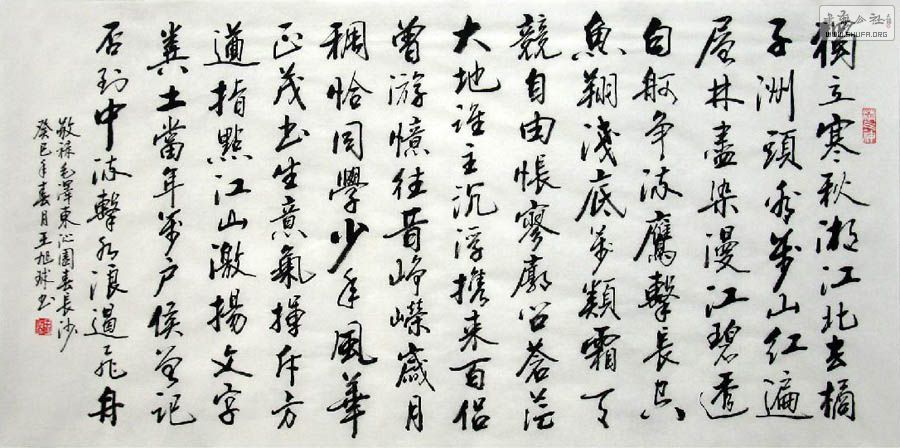 獨立寒秋湘江北去橘
子洲頭看萬山紅遍
層林盡染漫江碧透
百舸争流鷹擊長空
魚翔淺底萬類霜天
競自由悵寥廓問蒼茫
大地誰主沉浮携来百侣
曾游憶往昔崢嶸歲月
稠恰同學少年風華
正茂书生意氣揮斥方
遒指點江山激揚文字
糞土當年萬户侯曾记
否到中流擊水浪遏飛舟
敬録毛澤東沁園春長沙
癸巳年春月王旭球书
书法公社
WWW.SHUFA.ORG